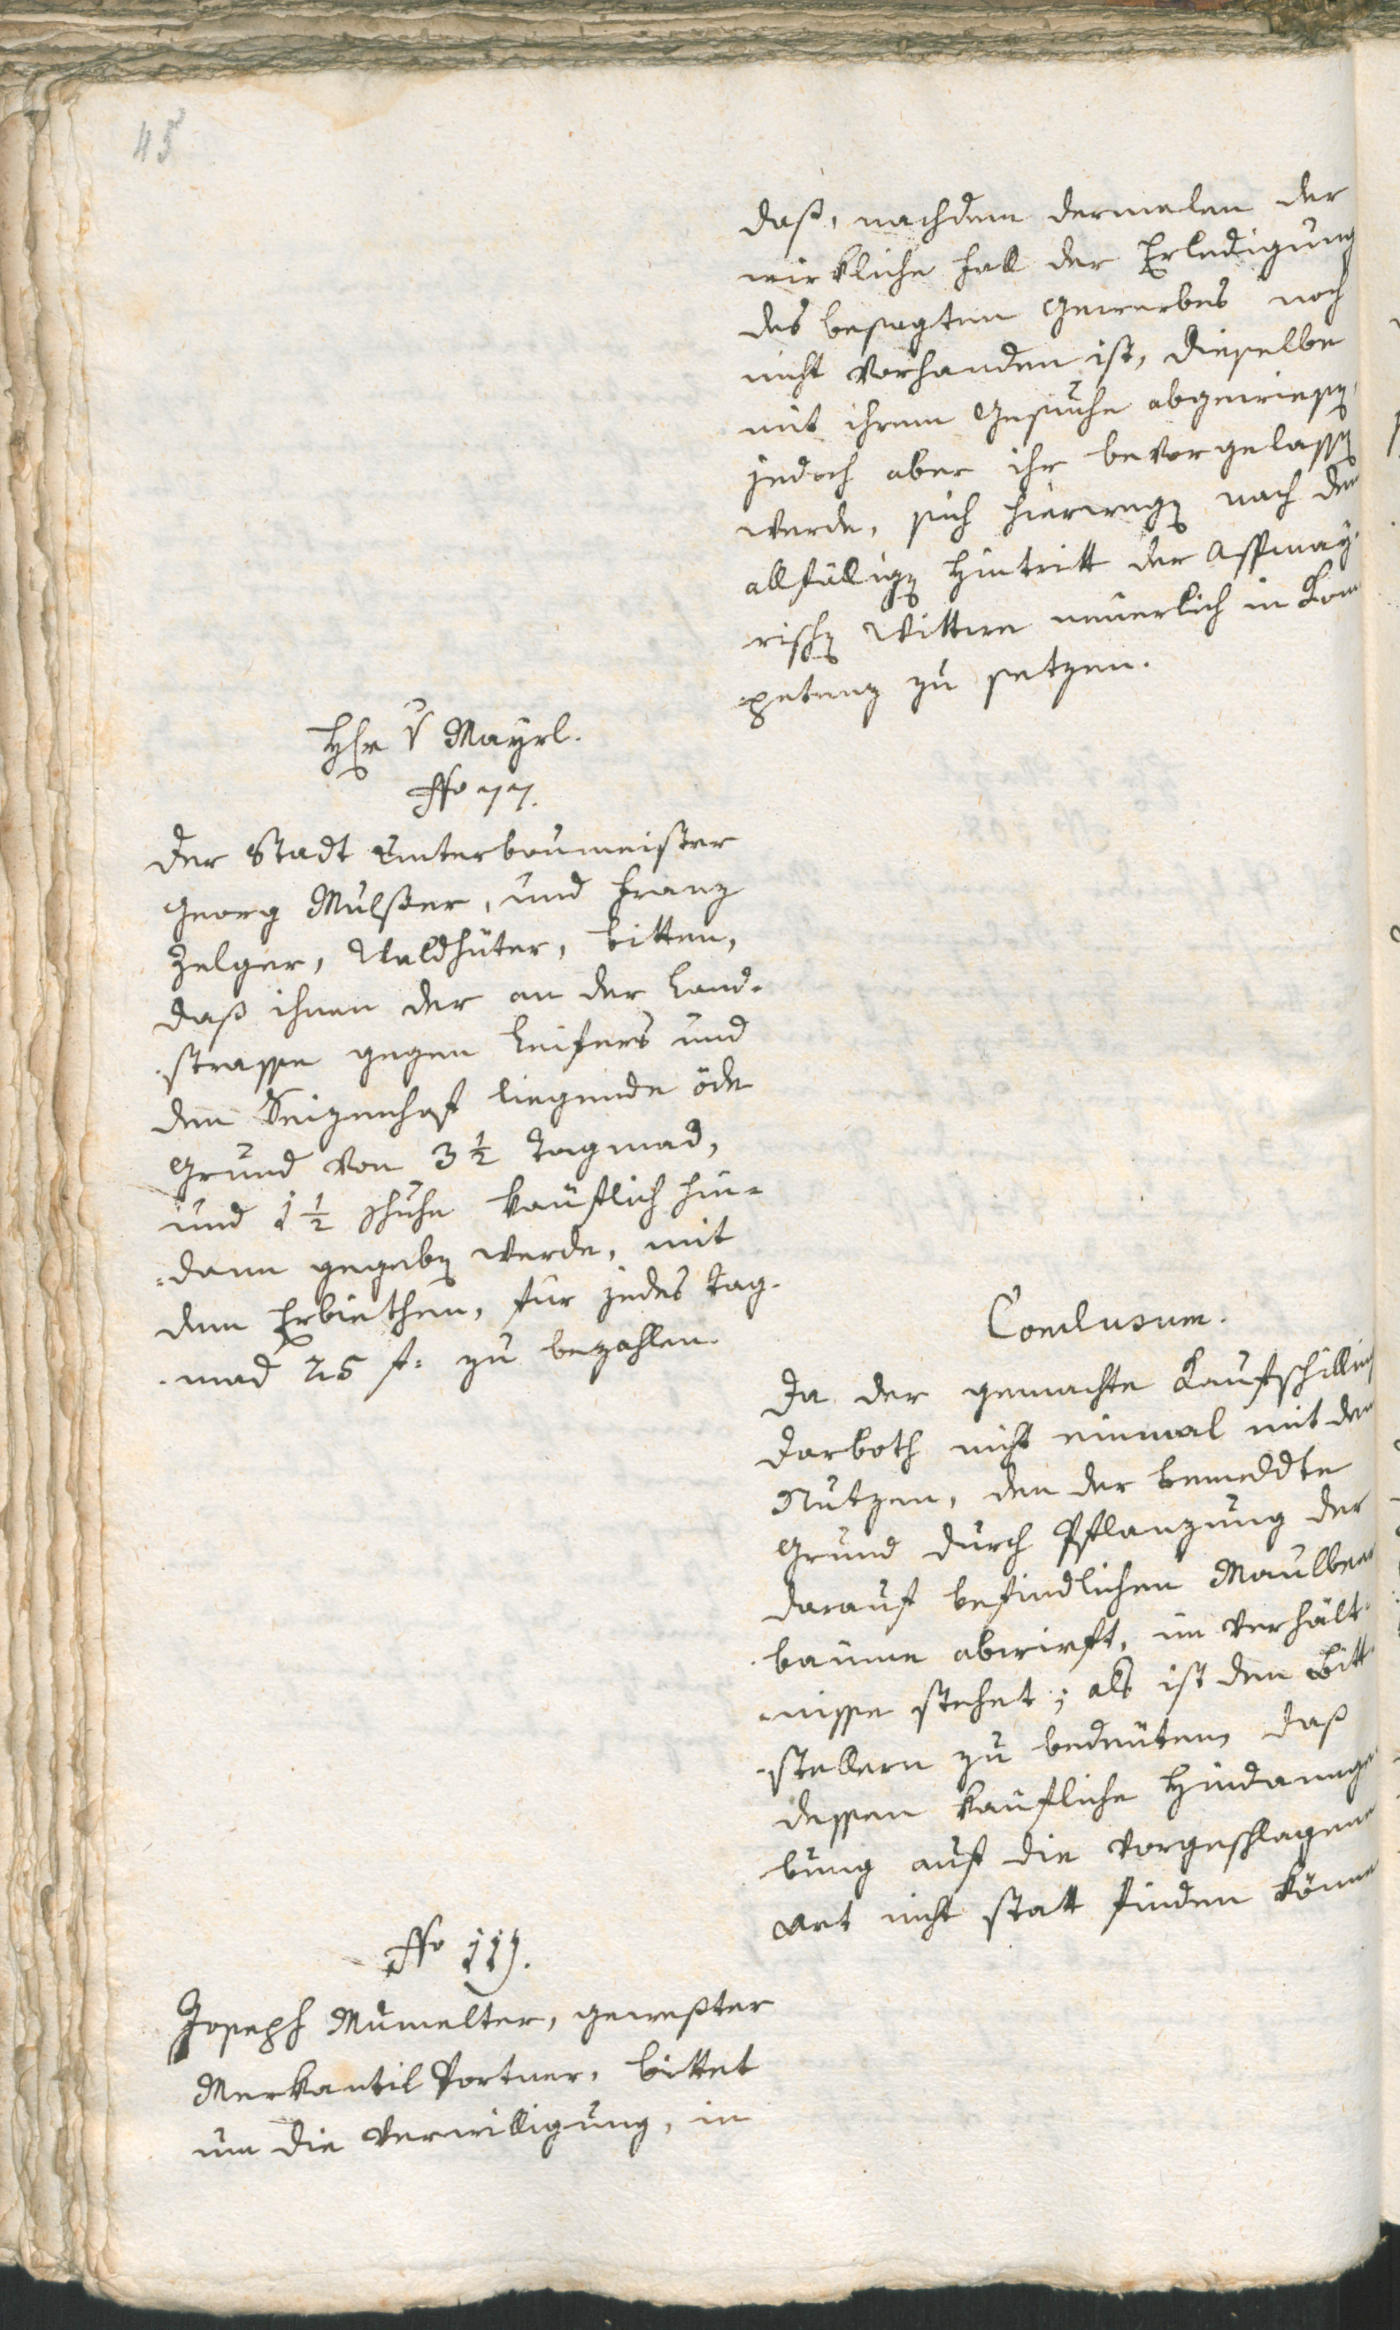 45
daß, nachdem dermalen der
wirkliche Fall der Erledigung
des besagten Gewerbes noch
nicht vorhanden ist, dieselbe
mit ihrem Gesuche abgewiesen,
jedoch aber ihr bevorgelassen
werde, sich hierwegen nach dem
allfälligen Hintritt der Assmay-
rischen Wittwe neuerlich in Kom
petenz zu setzen.
Hr v Mayrl.
No 77.
Der Stadt Unterbaumeister
Georg Mulßer, und Franz
Zelger, Waldhüter, bitten,
daß ihnen der an der Land-
strasse gegen Leifers und
dem Seizenhof liegende öde
Grund von 3 1/2 Tagmad,
und 1 1/2 Schuhe käuflich hin-
dann gegeben werde, mit
dem Erbiethen, für jedes Tag-
mad 25 f: zu bezahlen.
Conclusum.
Da der gemachte Kaufschilling
Darboth nicht einmal mit dem
Nutzen, den der bemeldte
Grund durch Pflanzung der
darauf befindlichen Maulbeer
bäume abwirft, im Verhält-
nisse stehet; als ist den Bitt-
stellern zu bedeuten, daß
dessen käufliche Hindannge
bung auf die vorgeschlagene
Art nicht statt finden könne
No 119.
Joseph Mumelter, gewester
Merkantil Portner, bittet
um die Verwilligung, in